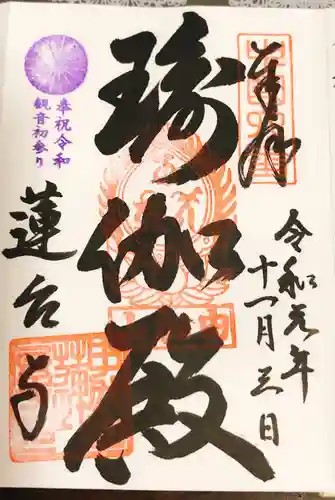 奉拝
令和元年
十一月三日
瑜伽殿
奉祝令和
観音初参り
蓮台寺